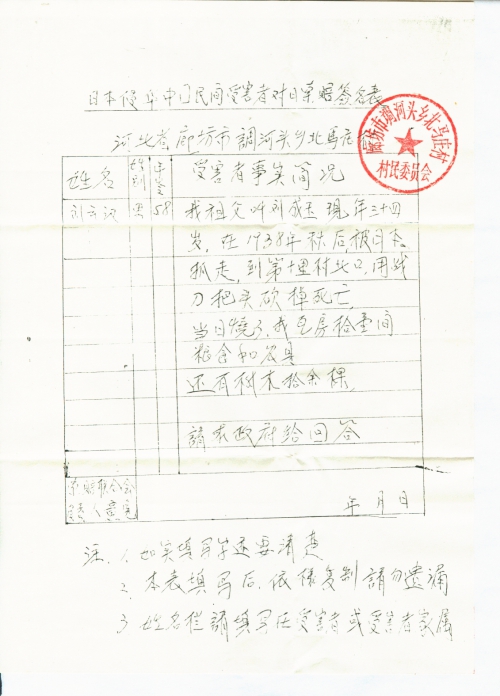 日本侵华中国民间受害者对日索赔签名表
河北省廊坊市調河头乡北馬庄
廊坊市调河头乡北马庄村
村民委员会
姓名 性别 年龄 受害者事实简况
刘云汉 男 58 我祖父叫刘成玉 现年三十四
岁,在1938年秋后,被日本
抓走,到第十里村北口,用战
刀把头砍掉死亡,
当日烧了我宅房拾壹间
粮食和农具
还有树木拾余棵,
請求政府给回答
索賠
年 月 日
注、1、如实填写字迹要清楚
2、本表填写后,依様复制請勿遗漏
3、姓名栏請填写在受害者或受害者家属